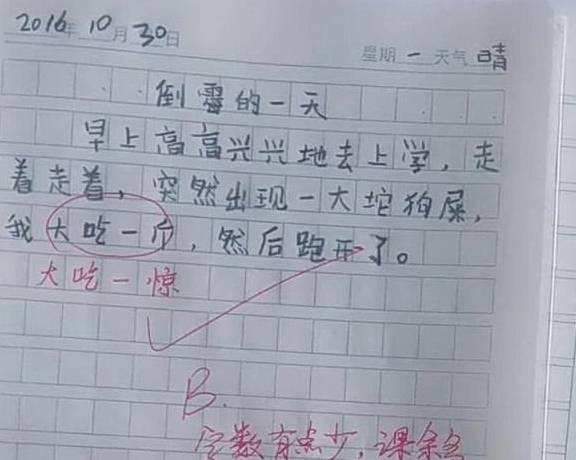 2016年 10月 30日 星期 一 天气 晴
倒霉的一天
早上高高兴兴地去上学，走
着走着，突然出现一大坨狗屎，
我大吃一斤，然后跑开了。
大吃一惊
B.
字数有点少，课余